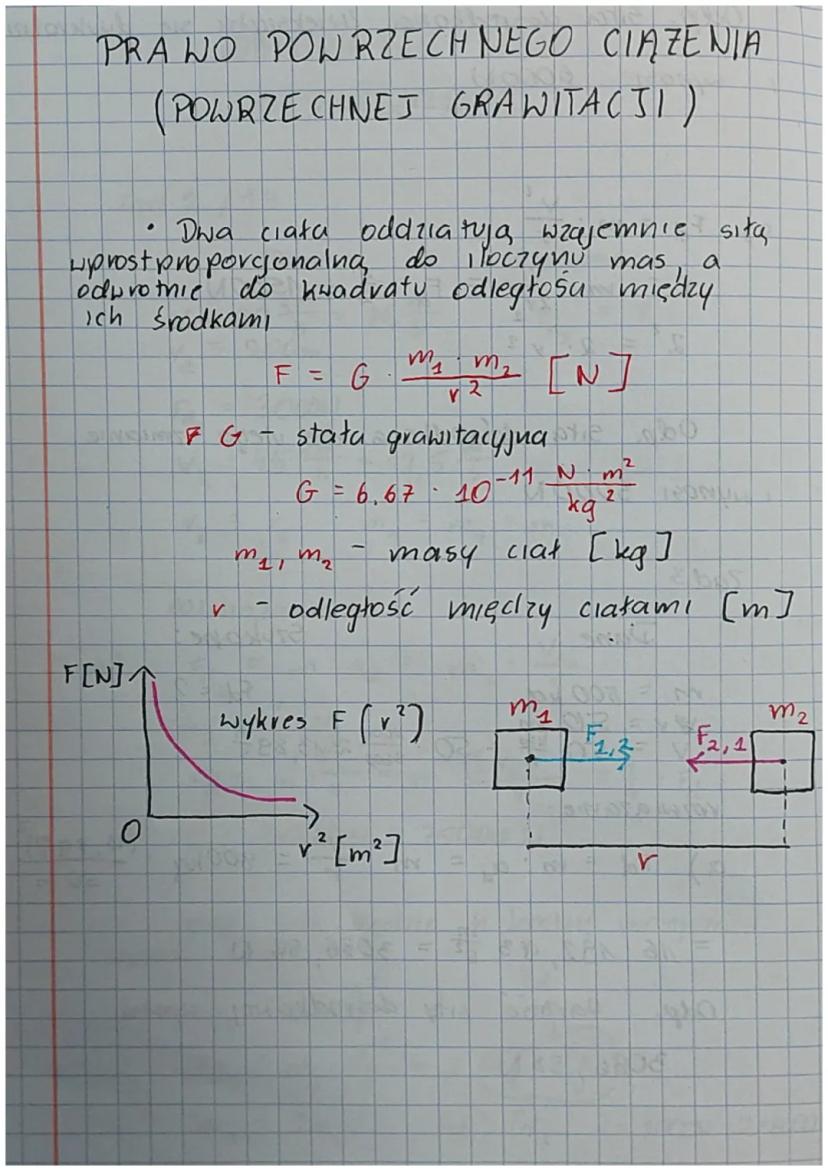 PRAWO POWRZECHNEGO CIĄŻENIA
(POWRZECHNEJ GRAWITACJI)
• Dwa ciała oddziałują wzajemnie siłą
wprostproporcjonalną do iloczynu mas, a
odwrotnie do kwadratu odległości między
ich środkami
F = G · m₁ · m₂ / r² [N]
G - stała grawitacyjna
G = 6,67 · 10⁻¹¹ N · m² / kg²
m₁, m₂ - masy ciał [kg]
r - odległość między ciałami [m]
F[N]
wykres F(r²)
0
r² [m²]
m₁
m₂
F₁,₂
F₂,₁
r